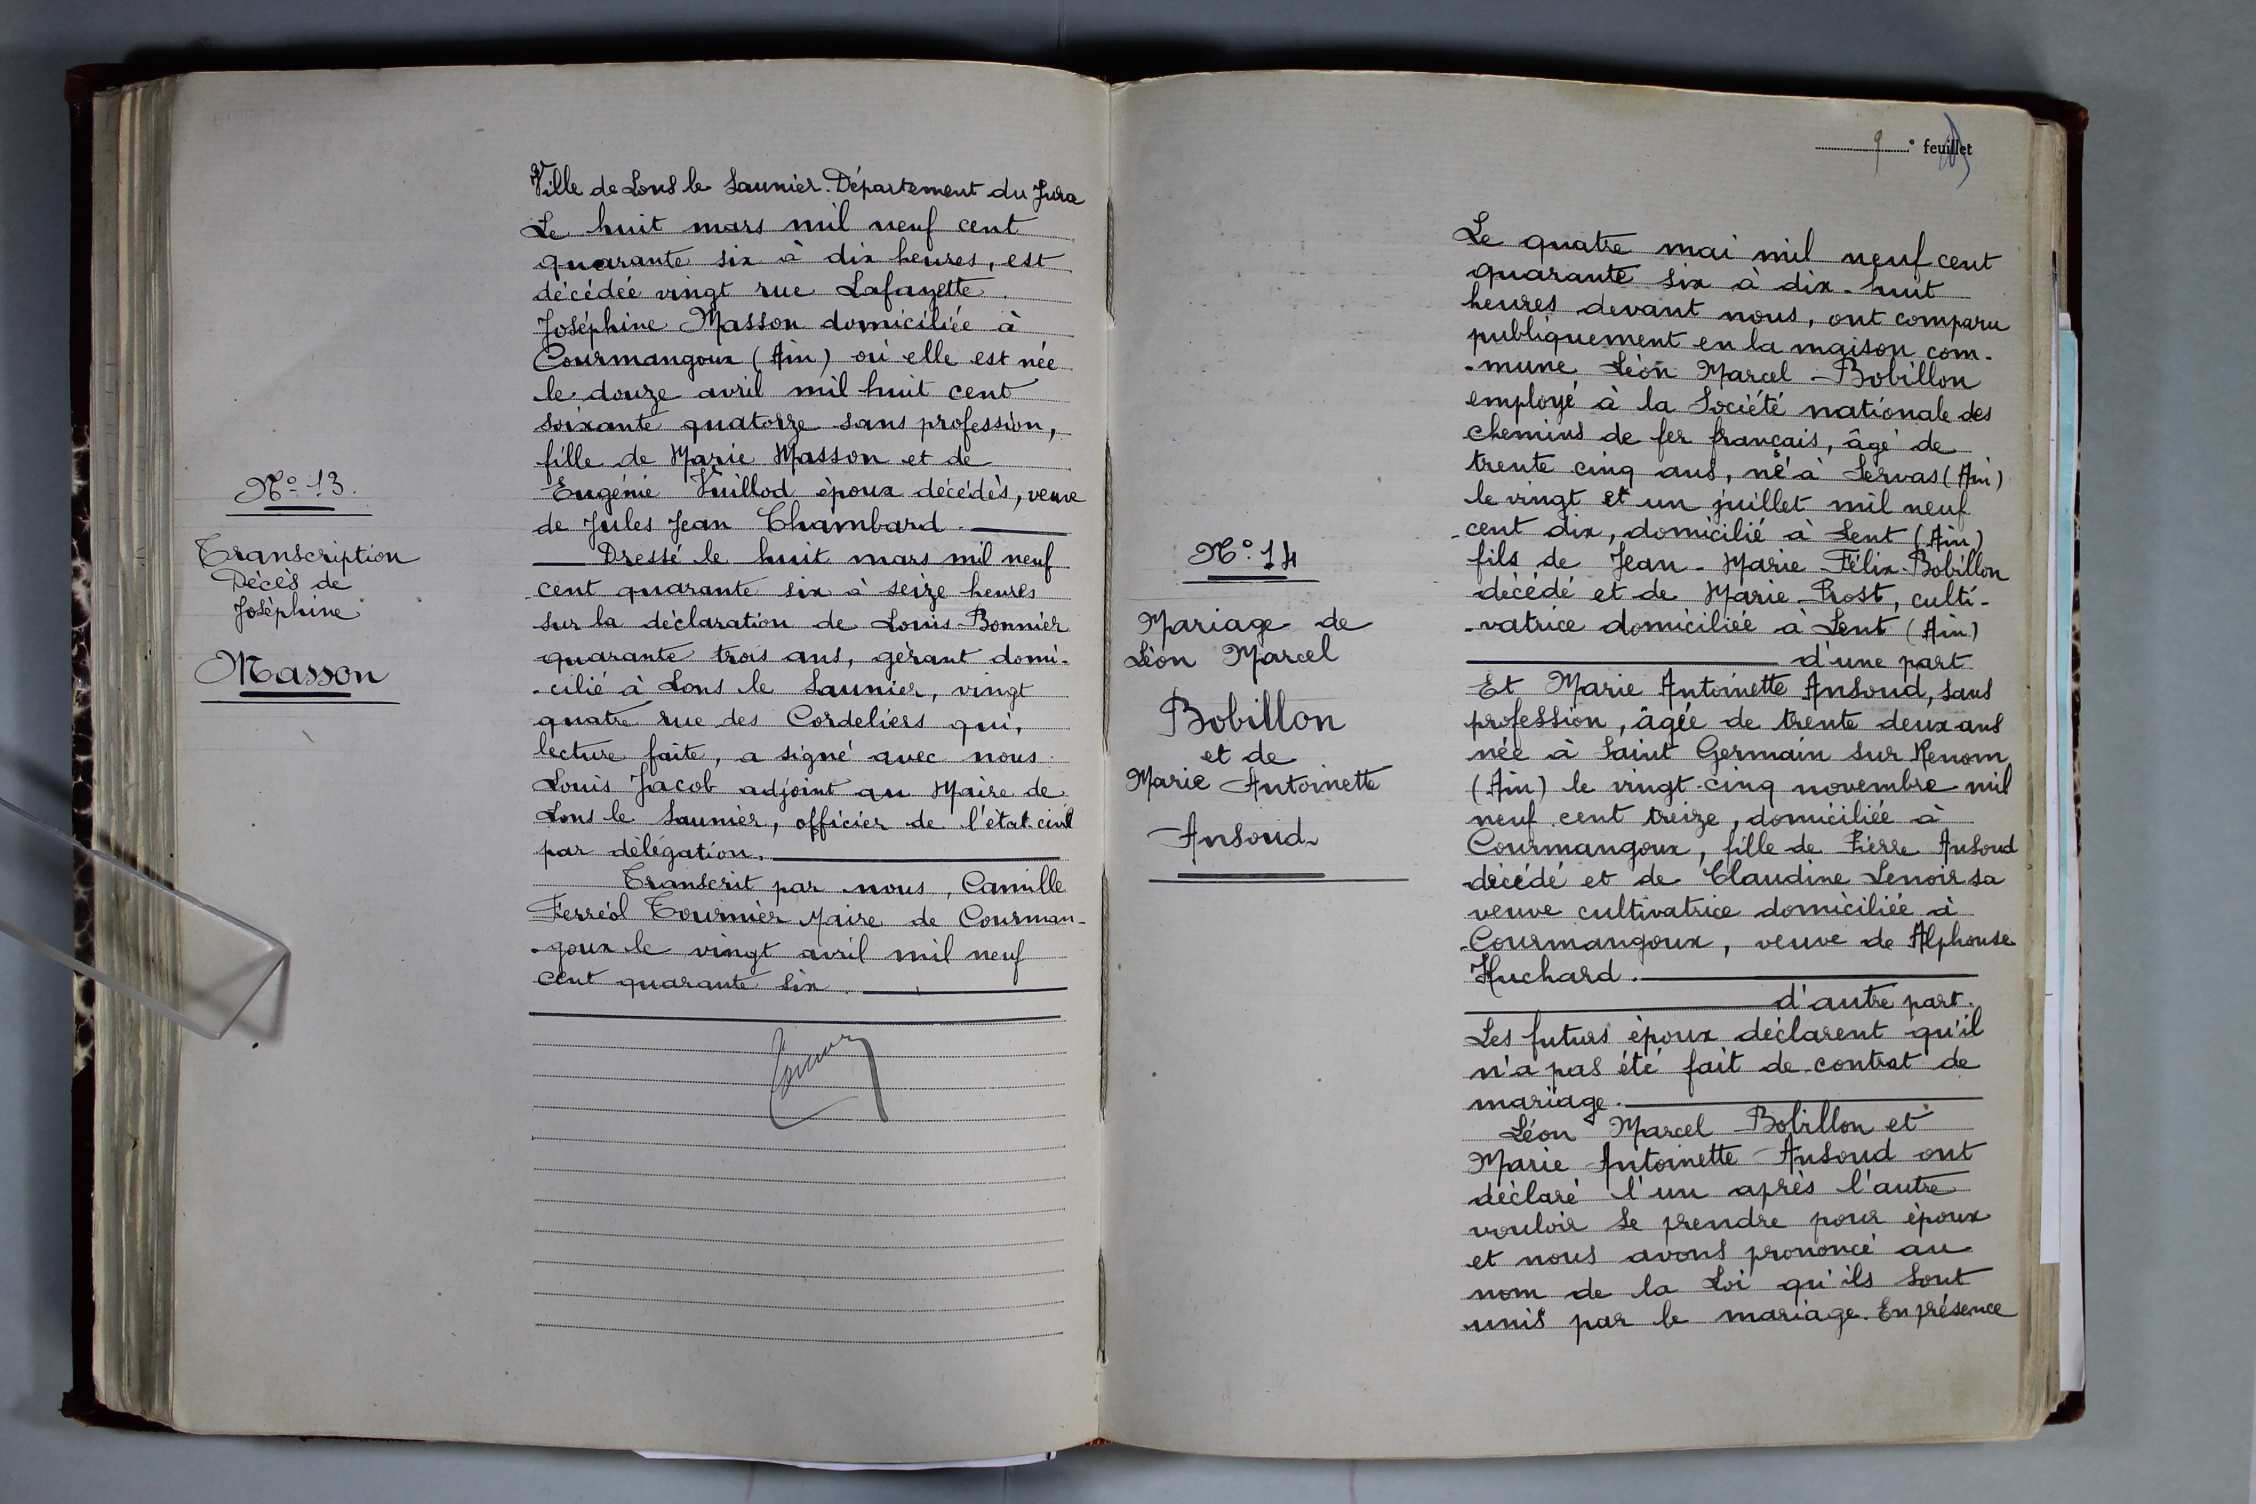 Nº 13
Transcription
Décès de
Joséphine
Masson
Ville de Lons le Saunier. Département du Jura
Le huit mars mil neuf cent
quarante six à dix heures, est
décédée vingt rue Lafayette
Joséphine Masson domiciliée à
Courmangoux (Ain) où elle est née
le douze avril mil huit cent
soixante quatorze sans profession,
fille de Marie Masson et de
Eugénie Vuillod époux décédés, veuve
de Jules Jean Chambard.
Dressé le huit mars mil neuf
cent quarante six à seize heures
sur la déclaration de Louis Bonnier
quarante trois ans, gérant domi-
-cilié à Lons le Saunier, vingt
quatre rue des Cordeliers qui,
lecture faite, a signé avec nous
Louis Jacob adjoint au Maire de
Lons le Saunier, officier de l'état civil
par délégation.
Transcrit par nous, Camille
Ferréol Tournier Maire de Courman-
-goux le vingt avril mil neuf
cent quarante six.
9 e feuillet
Nº 14
Mariage de
Léon Marcel
Bobillon
et de
Marie Antoinette
Ansoud
Le quatre mai mil neuf cent
quarante six à dix-huit
heures devant nous, ont comparu
publiquement en la maison com-
-mune Léon Marcel Bobillon
employé à la Société nationale des
chemins de fer français, âgé de
trente cinq ans, né à Servas (Ain)
le vingt et un juillet mil neuf
cent dix, domicilié à Lent (Ain)
fils de Jean-Marie Félix Bobillon
décédé et de Marie Prost, culti-
-vatrice domiciliée à Lent (Ain)
d'une part
Et Marie Antoinette Ansoud, sans
profession, âgée de trente deux ans
née à Saint Germain sur Renom
(Ain) le vingt-cinq novembre mil
neuf cent treize, domiciliée à
Courmangoux, fille de Pierre Ansoud
décédé et de Claudine Lenoir sa
veuve cultivatrice domiciliée à
Courmangoux, veuve de Alphonse
Huchard.
d'autre part.
Les futurs époux déclarent qu'il
n'a pas été fait de contrat de
mariage.
Léon Marcel Bobillon et
Marie Antoinette Ansoud ont
déclaré l'un après l'autre
vouloir se prendre pour époux
et nous avons prononcé au
nom de la Loi qu'ils sont
unis par le mariage. En présence